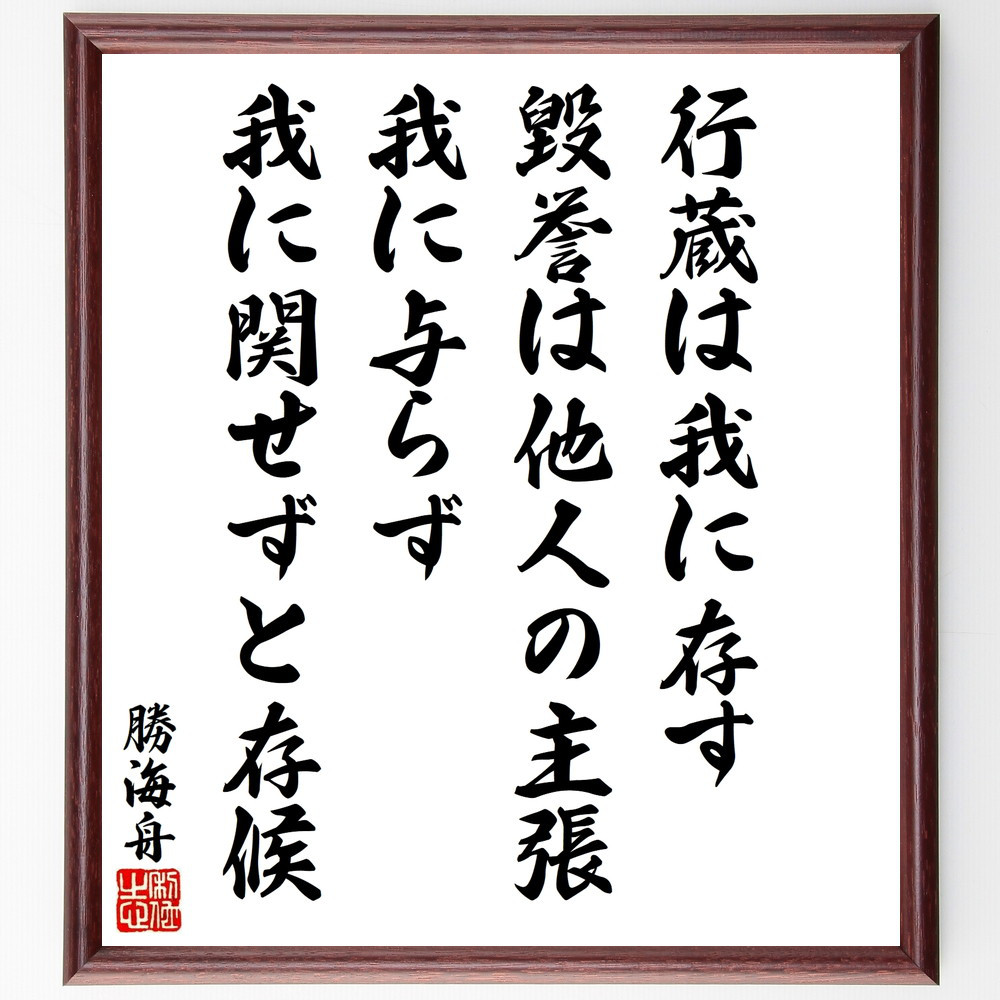 行蔵は我に存す
毀誉は他人の主張
我に与らず
我に関せずと存候
勝海舟